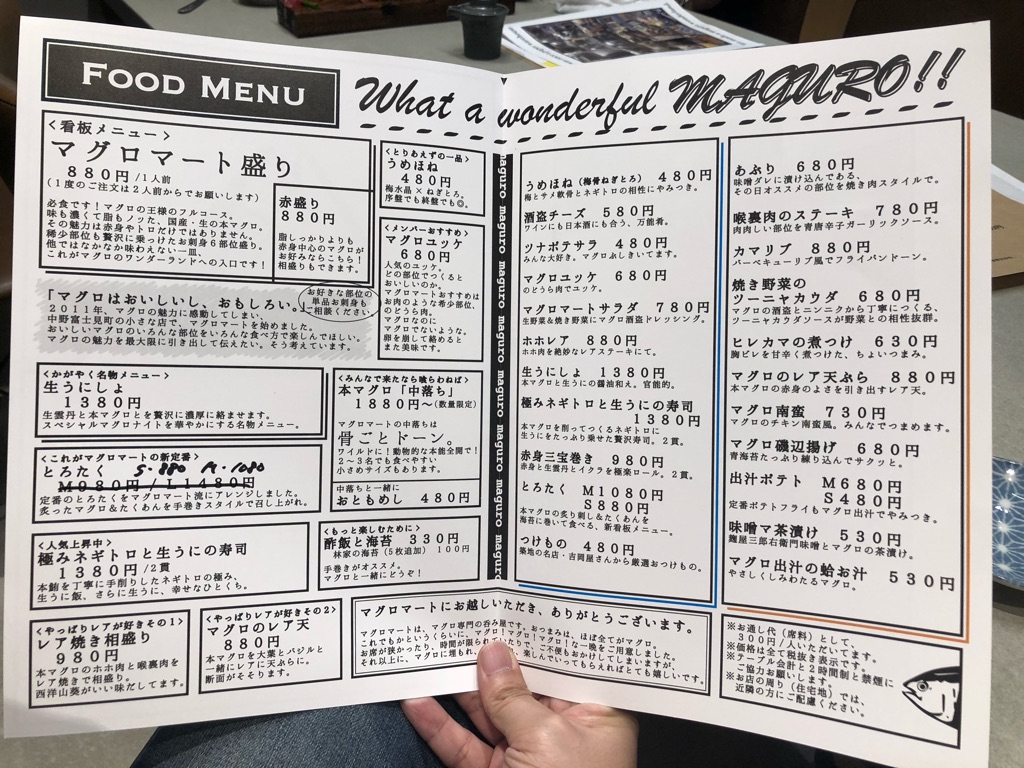 FOOD MENU
What a wonderful MAGURO!!
<看板メニュー>
マグロマート盛り
880円/1人前
(1度のご注文は2人前からでお願いします)
必食です!マグロの王様のフルコース。
味も濃くて脂もノッた、国産・生の本マグロ。
その魅力は赤身やトロだけではありません。
稀少部位も贅沢に乗っけたお刺身6部位盛り。
他ではなかなか味わえない一皿、
これがマグロのワンダーランドへの入口です!
赤盛り
880円
脂しっかりよりも
赤身中心のマグロが
お好みならこちら!
相盛りもできます。
お好きな部位の
単品お刺身も
ご相談ください
「マグロはおいしいし、おもしろい。」
2011年、マグロの魅力に感動してしまい、
中野富士見町の小さな店で、マグロマートを始めました。
おいしいマグロのいろんな部位をいろんな食べ方で楽しんでほしい。
マグロの魅力を最大限に引き出して伝えたい。そう考えています。
<とりあえずの一品>
うめほね
480円
梅水晶×ねぎとろ。
序盤でも終盤でも◎。
<メンバーおすすめ>
マグロユッケ
680円
人気のユッケ。
どの部位でつくると
おいしいのか。
マグロマートおすすめは
お肉のような希少部位、
のどうら肉。
マグロなのに
マグロでないような。
卵を崩して絡めると
また美味です。
<かがやく名物メニュー>
生うにしょ
1380円
生雲丹と本マグロとを贅沢に濃厚に絡ませます。
スペシャルマグロナイトを華やかにする名物メニュー。
<みんなで来たなら喰らわねば>
本マグロ「中落ち」
1880円～(数量限定)
マグロマートの中落ちは
骨ごとドーン。
ワイルドに!動物的な本能全開で!
2～3名でも食べやすい
小さめサイズもあります。
中落ちと一緒に
おともめし 480円
<これがマグロマートの新定番>
とろたく S.880 M.1080
M980円/L1480円
定番のとろたくをマグロマート流にアレンジしました。
炙ったマグロ&たくあんを手巻きスタイルで召し上がれ。
<人気上昇中>
極みネギトロと生うにの寿司
1380円/2貫
本鮪を丁寧に手削りしたネギトロの極み、
生うに飯、さらに生うに、幸せなひとくち。
<もっと楽しむために>
酢飯と海苔 330円
林家の海苔(5枚追加) 100円
手巻きがオススメ。
マグロと一緒にどうぞ!
<やっぱりレアが好きその1>
レア焼き相盛り
980円
本マグロのホホ肉と喉裏肉を
レア焼きで相盛り。
西洋山葵がいい味だしてます。
<やっぱりレアが好きその2>
マグロのレア天
880円
本マグロを大葉とバジルと
一緒にレアに天ぷらに。
断面がそそります。
マグロマートにお越しいただき、ありがとうございます。
マグロマートは、マグロ専門の呑み屋です。おつまみは、ほぼ全てがマグロ。
これでもかというくらいに、マグロ!マグロ!マグロ!な一晩をご用意しました。
お席が狭かったり、時間が限られていたりで、ご不便もおかけしてしまいますが、
それ以上に、マグロに埋もれ、楽しんでいってもらえればとても嬉しいです。
maguro maguro maguro maguro maguro maguro maguro maguro maguro
うめほね(梅骨ねぎとろ) 480円
梅とサメ軟骨とネギトロの相性にやみつき。
酒盗チーズ 580円
ワインにも日本酒にも合う、万能肴。
ツナポテサラ 480円
みんな大好き。マグロぶしきいてます。
マグロユッケ 680円
のどうら肉でユッケ。
マグロマートサラダ 780円
生野菜&焼き野菜にマグロ酒盗ドレッシング。
ホホレア 880円
ホホ肉を絶妙なレアステーキにて。
生うにしょ 1380円
本マグロと生うにの醤油和え。官能的。
極みネギトロと生うにの寿司
1380円
本マグロを削ってつくるネギトロに
生うにをたっぷり乗せた贅沢寿司。2貫。
赤身三宝巻き 980円
赤身と生雲丹とイクラを極楽ロール。2貫。
とろたく M1080円
S880円
本マグロの炙り刺し&たくあんを
海苔に巻いて食べる、新看板メニュー。
つけもの 480円
築地の名店・吉岡屋さんから厳選おつけもの。
あぶり 680円
味噌ダレに漬け込んである、
その日オススメの部位を焼き肉スタイルで。
喉裏肉のステーキ 780円
肉肉しい部位を青唐辛子ガーリックソース。
カマリブ 880円
バーベキューリブ風でフライパンドーン。
焼き野菜の
ツーニャカウダ 680円
マグロの酒盗とニンニクから丁寧につくる、
ツーニャカウダソースが野菜との相性抜群。
ヒレカマの煮つけ 630円
胸ビレを甘辛く煮つけた、ちょいつまみ。
マグロのレア天ぷら 880円
本マグロの赤身のよさを引き出すレア天。
マグロ南蛮 730円
マグロのチキン南蛮風。みんなでつまめます。
マグロ磯辺揚げ 680円
青海苔たっぷり練り込んでサクッと。
出汁ポテト M680円
S480円
定番ポテトフライもマグロ出汁でやみつき。
味噌マ茶漬け 530円
麹屋三郎右衛門味噌とマグロの茶漬け。
マグロ出汁の蛤お汁 530円
やさしくしみわたるマグロ。
※お通し代(席料)として、
300円/1人いただいてます。
※価格は全て税抜き表示です。
※テーブル会計と2時間制と禁煙に
ご協力お願いします。
※お店の周り(住宅地)では、
近隣の方にご配慮ください。